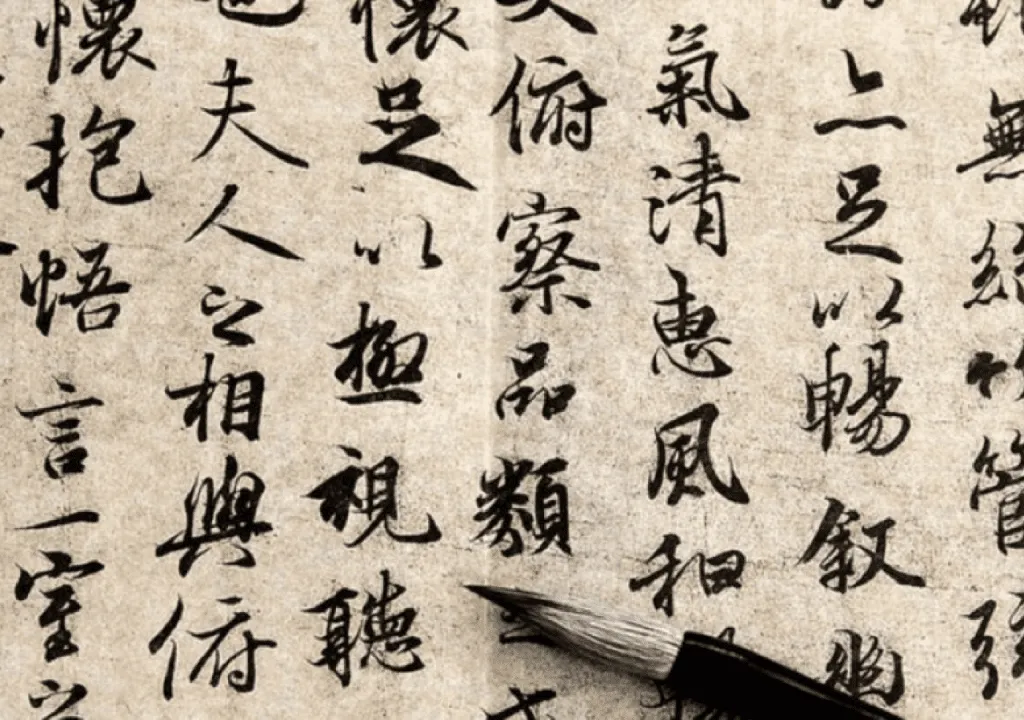 無絲竹管弦
亦足以暢叙幽
氣清惠風和
俯察品類
懷足以極視聽
也夫人之相與俯
懷抱悟言一室之